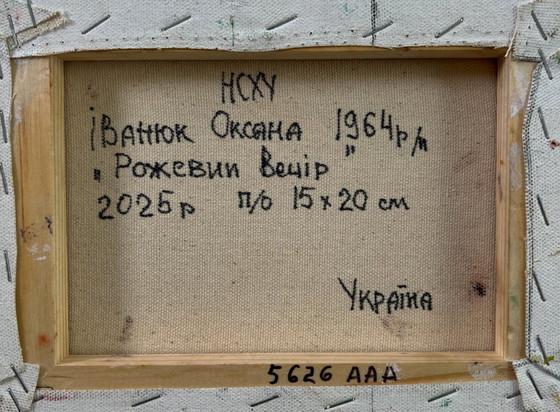 НСХУ
Іванюк Оксана 1964 р/н
„Рожевий Вечір"
2025 р п/о 15 х 20 см
Україна
5626 AAA